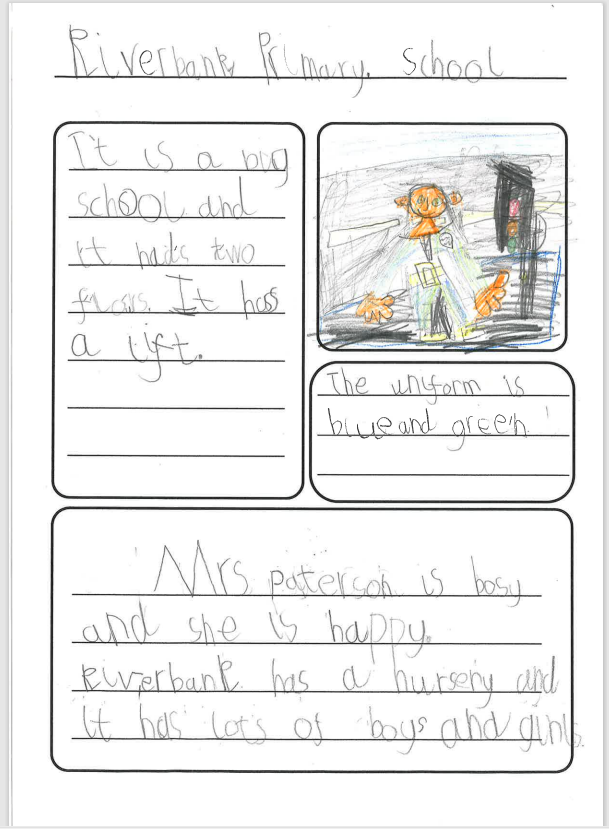 Riverbank Primary. School
It is a big
school and
it hads two
floors. It has
a lift.
The uniform is
blue and green.
Mrs paterson is bosy
and she is happy.
Riverbank has a nursery and
it has lots of boys and girls.